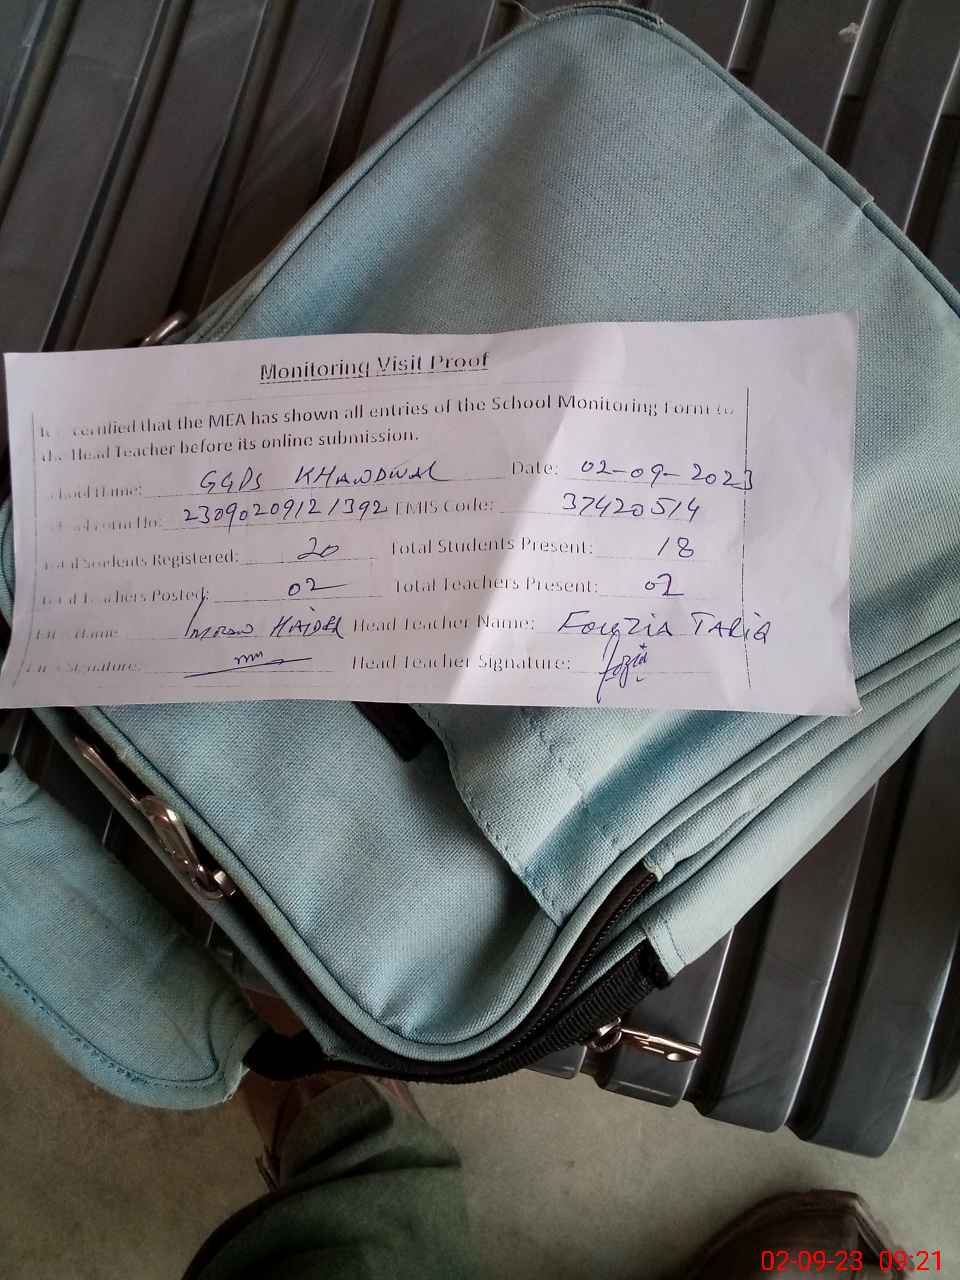 Monitoring Visit Proof
certified that the MEA has shown all entries of the School Monitoring Form to
the Head Teacher before its online submission.
School Name: GGPS KHANDWAL Date: 02-09-2023
No: 23090209121392 EMIS Code: 37420514
Total Students Registered: 20 Total Students Present: 18
Total Teachers Posted: 02 Total Teachers Present: 02
Name HAIDER Head Teacher Name: FOUZIA TARIQ
Signature: Head Teacher Signature: fozia
02-09-23 09:21